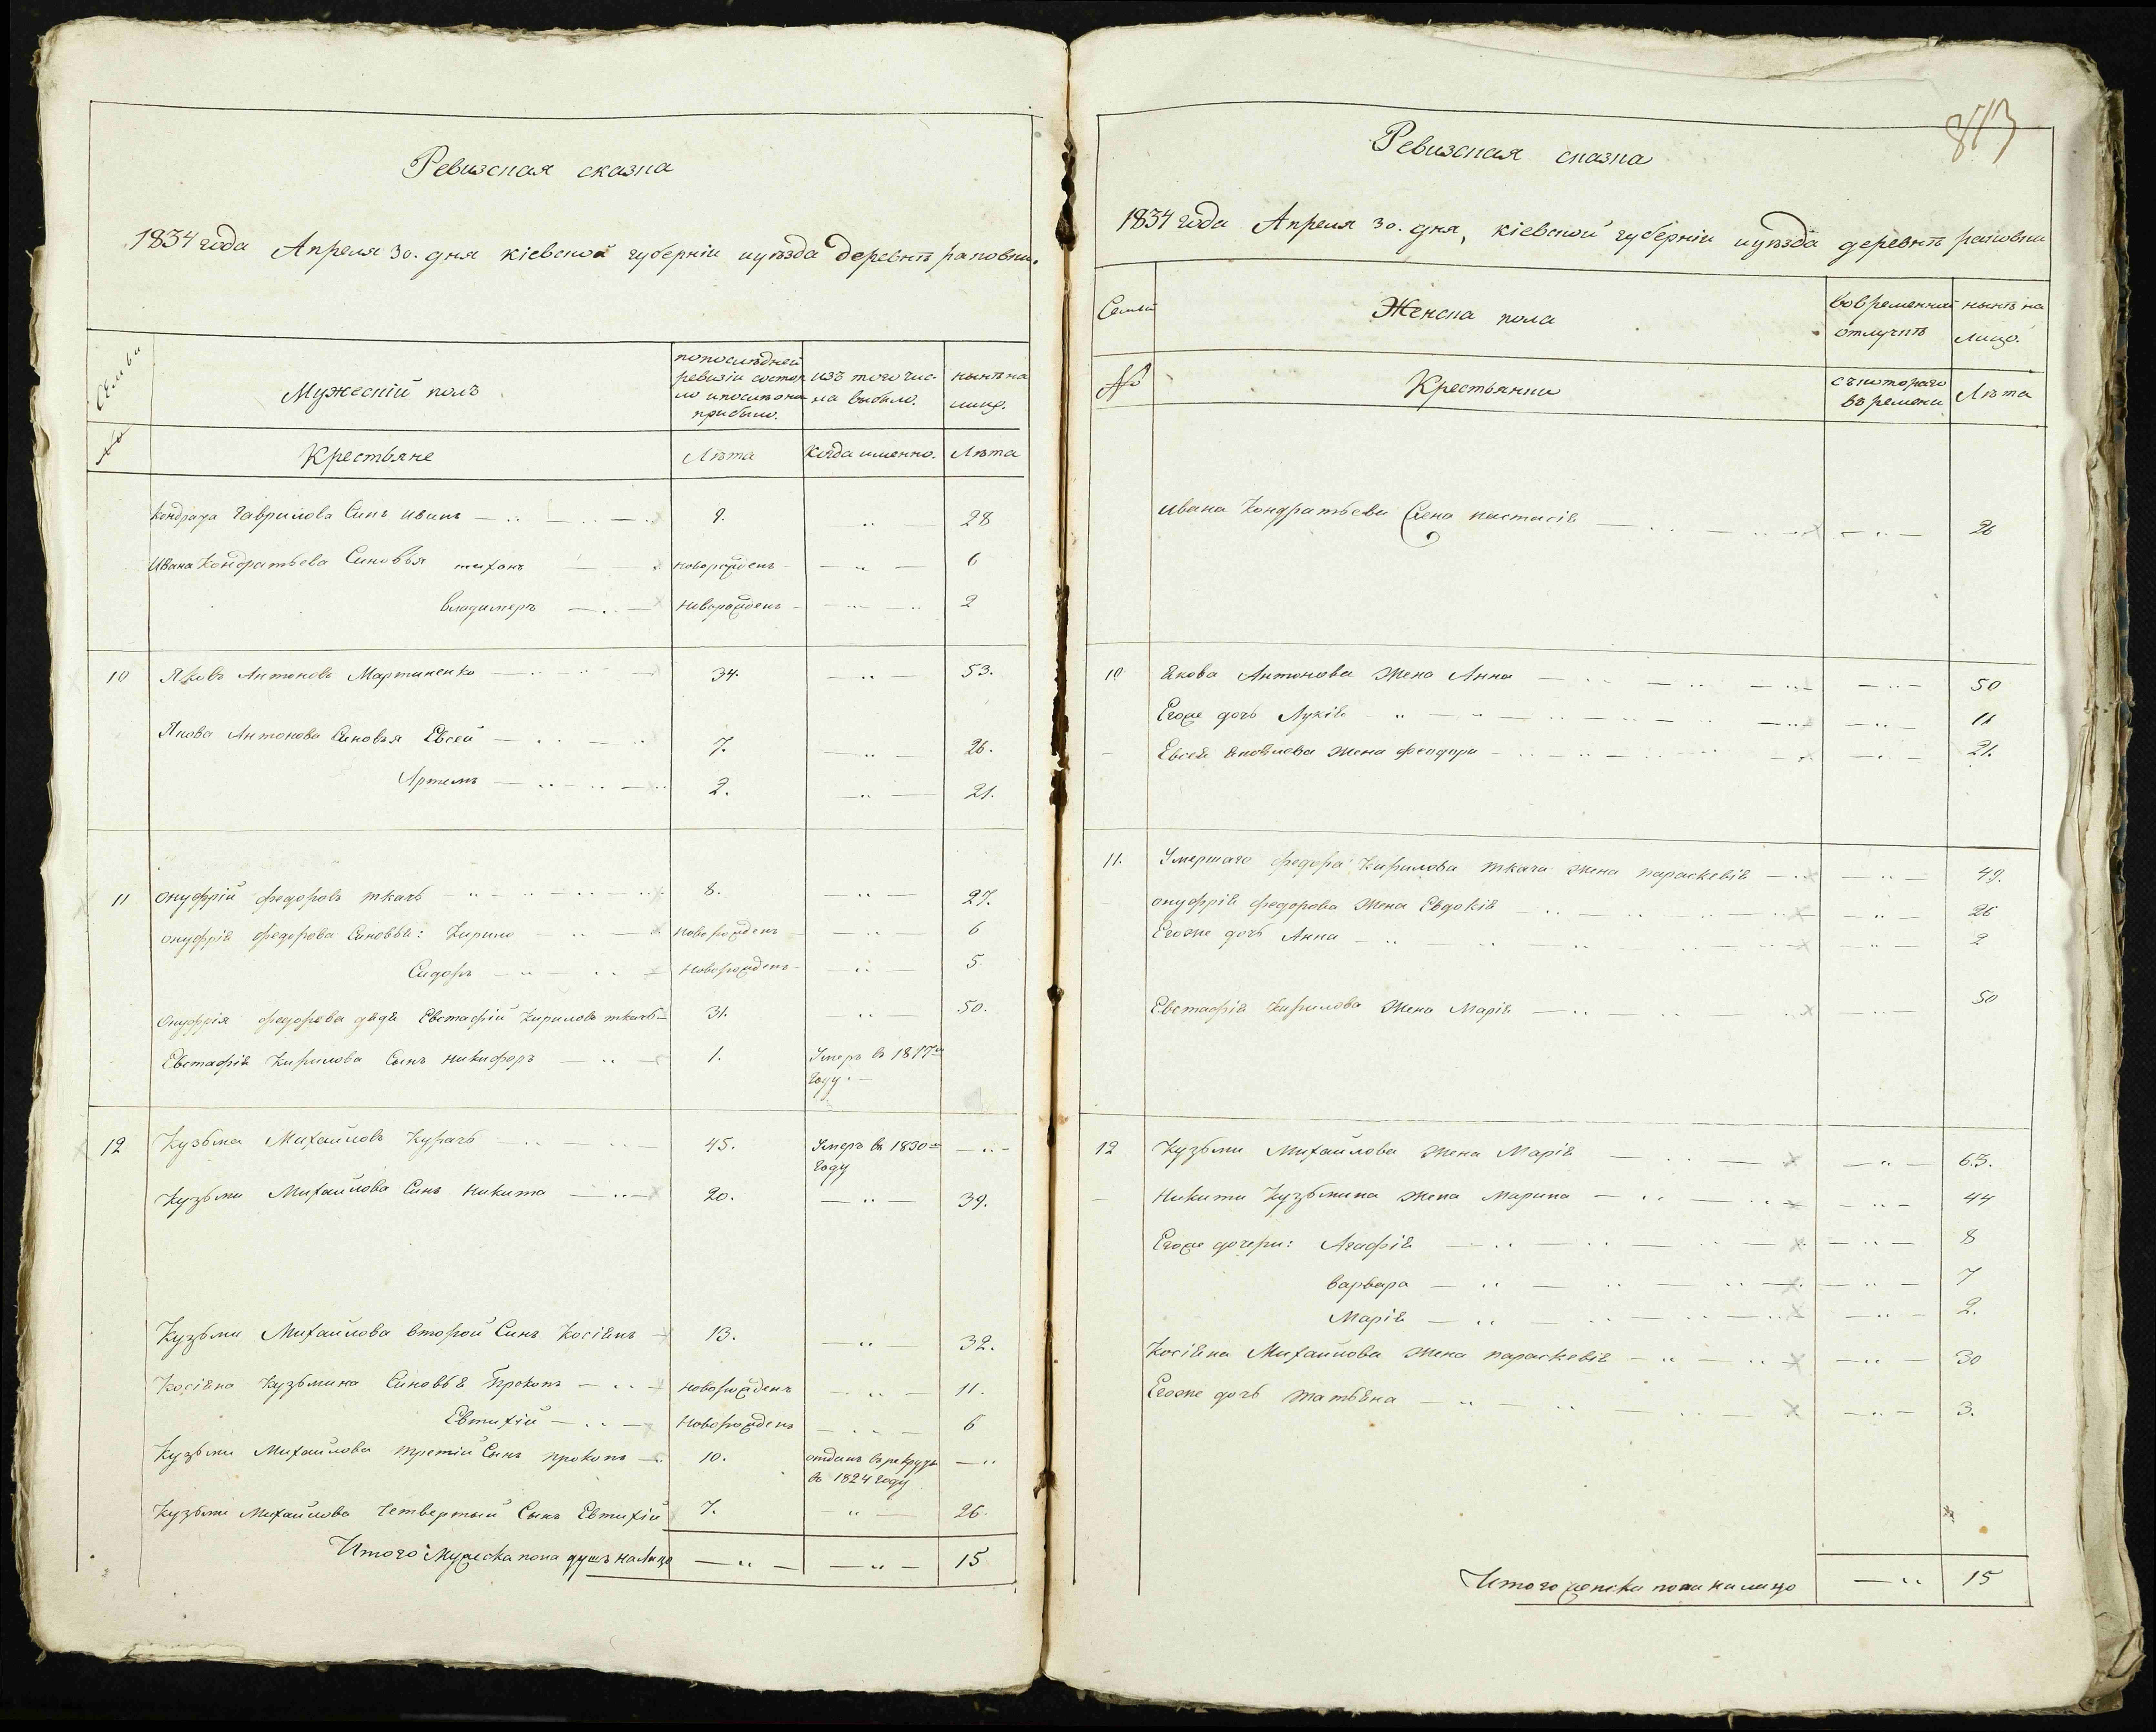 Ревизская сказка
1834 года Апреля 30. дня кіевской губерніи и уѣзда деревнѣ раковки.
Семьи
Мужескій полъ
попослѣдней ревизіи состояло и послѣ она прибыло.
изъ того числа выбыло.
нынѣ на лицо.
№
Крестьяне
Лѣта
Когда именно.
Лѣта
Кондрата Гаврилова Синъ иванъ — 9. — 28
Ивана Кондратьева Синовья тихонъ — новорожденъ — 6
владимеръ — новорожденъ — 2
10 Яковъ Антоновъ Мартиненко — 34. — 53.
Якова Антонова Синовья Евсей — 7. — 26.
Артемъ — 2. — 21.
11 онуфрій федоровъ ткачъ — 8. — 27.
онуфрія федорова Синовья: Кирило — новорожденъ — 6
Сидоръ — новорожденъ — 5.
Онуфрія федорова дядя Евстафій Кириловъ ткачъ — 31. — 50.
Евстафія Кирилова Сынъ никифоръ — 1. Умеръ в 1817м
году. —
12 Кузьма Михайловъ Курачъ — 45. Умеръ в 1830м — „ —
году
Кузьми Михайлова Синъ Никита — 20. — 39.
Кузьми Михайлова второй Синъ Косіянъ — 13. — 32.
Косіяна Кузьмина Синовья Прокопъ — новорожденъ — 11.
Евтихій — новорожденъ — 6
Кузьми Михайлова третій Сынъ прокопъ — 10. отданъ въ рекруты —
въ 1824 году
Кузьми Михайлова Четвертый Сынъ Евтихій 7. — 26.
Итого Мужеска пола душъ на лицо — — 15
813
Ревизская сказка
1834 года Апреля 30. дня, кіевской губерніи и уѣзда деревнѣ раковки
Семьи
Женска пола
во временной отлучкѣ
нынѣ на лицо.
№
Крестьянки
съ котораго времени
Лѣта
ивана Кондратьева Жена настасія — 26
10 Якова Антонова Жена Анна — 50
Егоже дочь Лукія — 11
Евсея Яковлева Жена феодора — 21.
11. Умершаго федора Кирилова ткача жена параскевія — 49.
онуфрія федорова Жена Евдокія — 26
Егоже дочь Анна — 2
Евстафія Кирилова Жена Марія — 50
12 Кузьми Михайлова жена Марія — 63.
Никити Кузьмина жена Марина — 44
Егоже дочери: Агафія — 8
варвара — 7
Марія — 2.
Косіяна Михайлова Жена параскевія — 30
Егоже дочь татьяна — 3.
Итого женска пола на лицо — 15